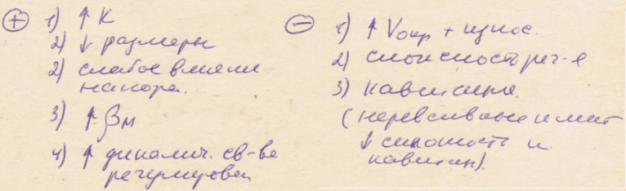 ⊕ 1) ↑ К
2) ↓ размеры
2) слабое влияние
напора.
3) ↑ βм
4) ↑ динамич. св-ва
регулировки
⊖ 1) ↑ Vокр + износ.
2) сложность рег-я
3) кавитация
(
↓ сложность и
кавитац).